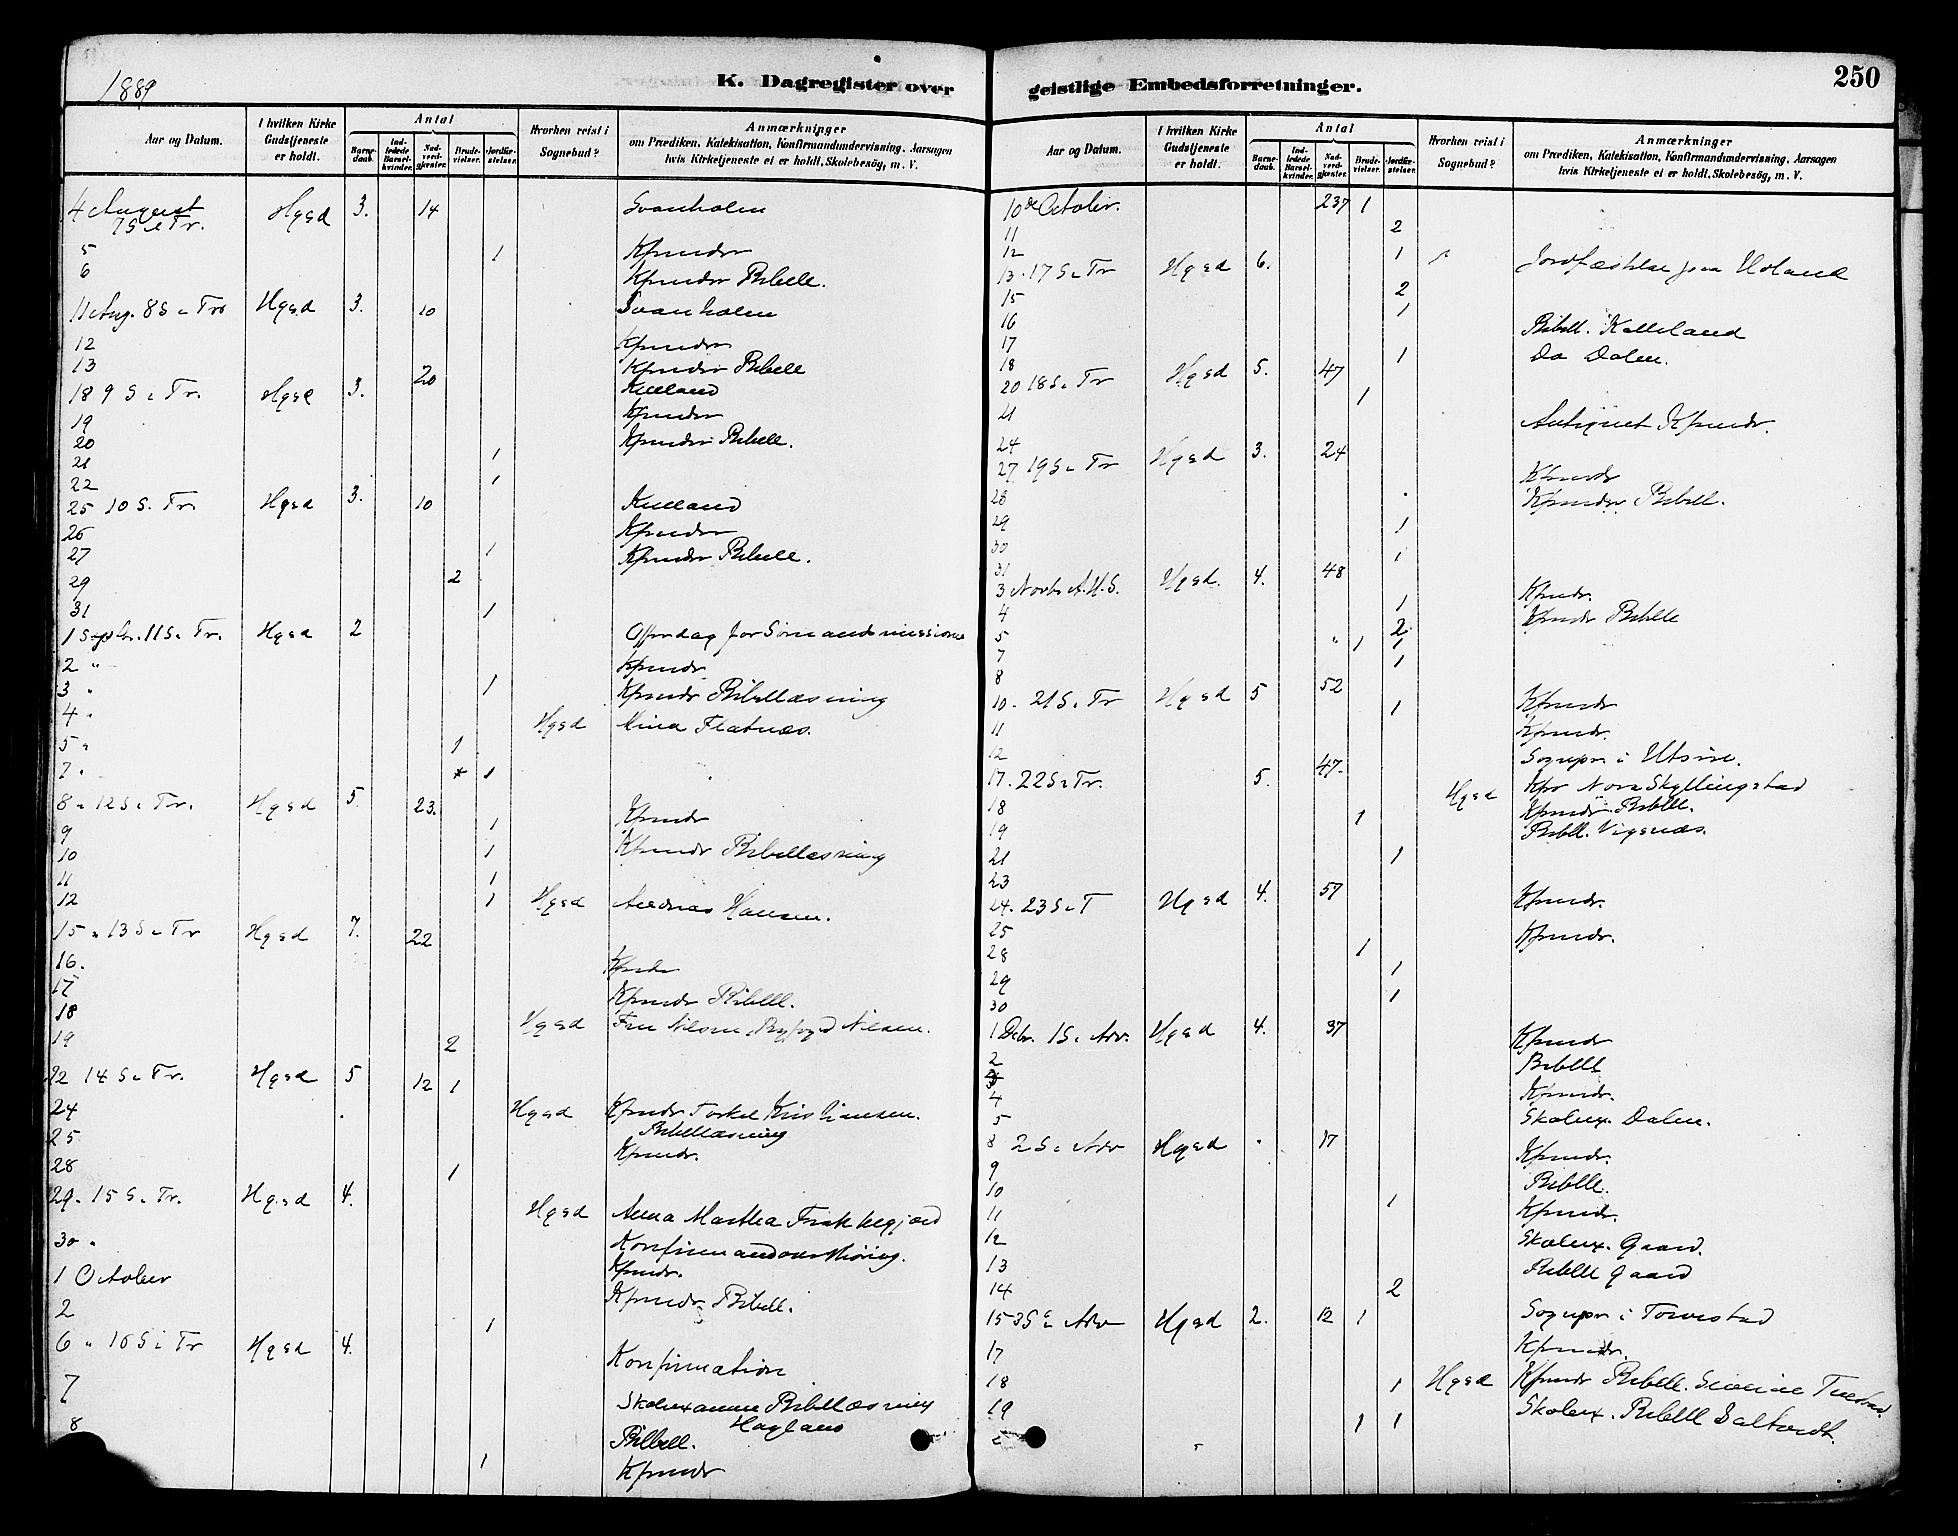 1889
K. Dagregister over
geistlige Embedsforretninger.
250
Aar og Datum.
I hvilken Kirke Gudstjeneste er holdt.
Antal
Barne-daab.
Ind-ledede Barsel-kvinder.
Nad-verd-gjester.
Brude-vielser.
Jordfæ-stelser.
Hvorhen reist i Sognebud?
Anmærkninger
om Prædiken, Katekisation, Konfirmandundervisning, Aarsagen
hvis Kirketjeneste ei er holdt, Skolebesög, m. V.
4 August 7 S. e Tr. Hgsd 3. 14 Svanholm
5 1 Kfmdr
6 Kfmdr Bibell.
11 Aug. 8 S. e Tr Hgsd 3. 10 Svanholm
12 Kfmdr
13 Kfmdr Bibell
18 9 S. e Tr. Hgsd 3. 20
19 Kfmdr
20 Kfmdr Bibell.
21 1
22 1
25 10 S. Tr Hgsd 3. 10
26 Kfmdr
27 1 Kfmdr Bibell.
29 2
31 1
1 Septbr. 11 S. e Tr. Hgsd 2 Offerdag for Sømandsmissionen
2 " Kfmdr
3 " 1 Kfmdr Bibellæsning
4 " Hgsd Flatnæs.
5 " 1
7 " 1
8 " 12 S. e Tr. Hgsd 5. 23.
9 1 Kfmdr
10 1 Kfmdr Bibellæsning
11 1
12 1 Hgsd Andreas Hansen.
15 " 13 S. e Tr Hgsd 7. 22
16. Kfmdr
17 Kfmdr Bibell.
18 Hgsd Fru Nilsen, Byfoged Nilsen.
19 2
22 14 S. e Tr. Hgsd 5 12 1
24 Hgsd Kfmdr Torkel Kristiansen.
25 Bibellæsning
Kfmdr.
28 1
29. 15 S. e Tr. Hgsd 4. Hgsd Anna Martha
30 " Konfirmandoverhøring.
1 October Kfmdr.
2 Kfmdr Bibell.
1
6 " 16 S. e Tr Hgsd 4. Konfirmation
7 Skolexamen Bibellæsning
Hagland
8 Bibell.
1 Kfmdr
Aar og Datum.
I hvilken Kirke Gudstjeneste er holdt.
Antal
Barne-daab.
Ind-ledede Barsel-kvinder.
Nad-verd-gjester.
Brude-vielser.
Jordfæ-stelser.
Hvorhen reist i Sognebud?
Anmærkninger
om Prædiken, Katekisation, Konfirmandundervisning, Aarsagen
hvis Kirketjeneste ei er holdt, Skolebesög, m. V.
10de October. 237 1
11 2
12 1
13. 17 S. e Tr Hgsd 6. Jordfæstelse paa
15 2
16 1
17 Bibell.
18 1 Do Dalen.
20 18 S. e Tr Hgsd 5. 47
21 1
24 Kfmdr.
27 19 S. e Tr Hgsd 3. 24
28 Kfmdr
29 1 Kfmdr Bibell.
30
31 1
3 Novbr A.H.S. Hgsd. 4. 48
4 1 Kfmdr.
5 2 Kfmdr Bibell
7 1 1
8 1
10. 21 S. e Tr Hgsd 5 52
11 1 Kfmdr
12 Kfmdr.
Sognepr i Utsire.
17. 22 S. e Tr. 5. 47.
Hgsd Nora Skyllingstad
18 Kfmdr Bibell.
19 1 Bibell. Vigsnæs.
21 1
23
24. 23 S. e T Hgsd 4. 57
25 Kfmdr.
28 1 Kfmdr.
29 1
30 1
1 Debr. 1 S. e Adv. Hgsd 4. 37
2 Kfmdr
3 Bibell
4 Kfmdr.
5 Skolex. Dalen.
8 2 S. e Adv Hgsd " 17
9 Kfmdr.
10 Bibell.
11 1 Kfmdr.
12 Skolex. Gaard.
13 Bibell Gaard
14 2
15 3 S. e Adv Hgsd 2. 12 1 Sognepr i Torvestad
17 Kfmdr.
18 1 Hgsd Kfmdr Bibell.
19 1 1 Skolex. Bibell